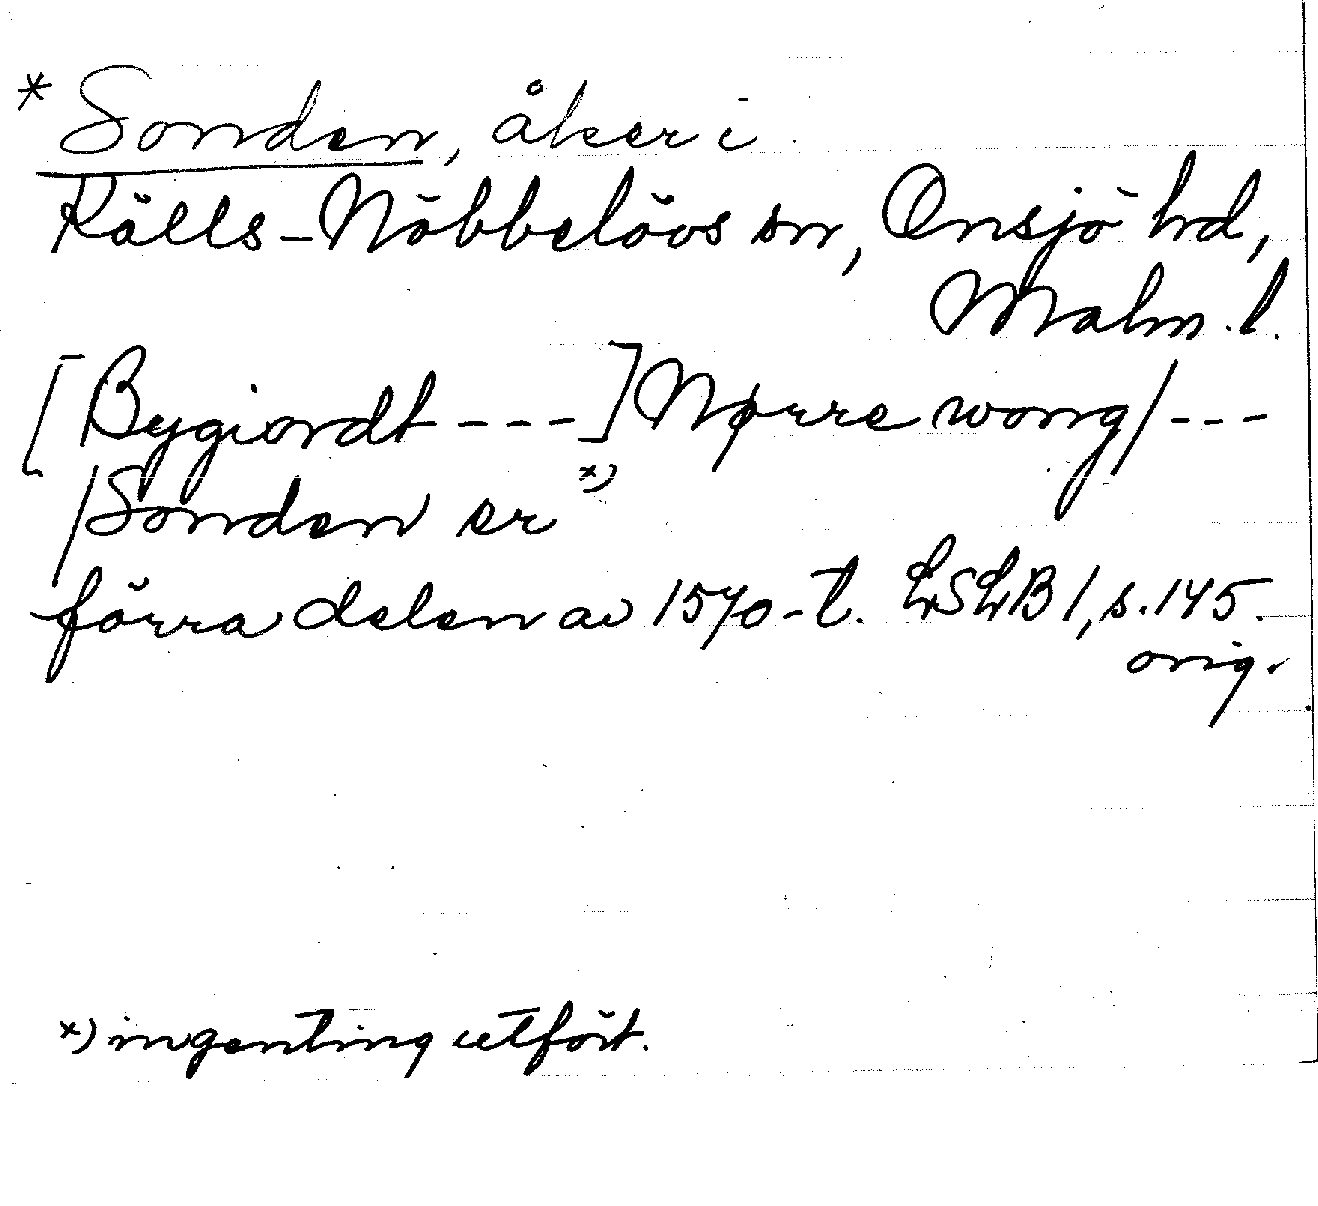 * Sonden, åker i
Källs-Nöbbelövs sn, Onsjö hd,
Malm. l.
[Bygiordt ---] Nørre wong/ ---
/Sonden er *)
förra delen av 1570-t. LSLB 1, s. 145.
orig.
*) ingenting utfört.